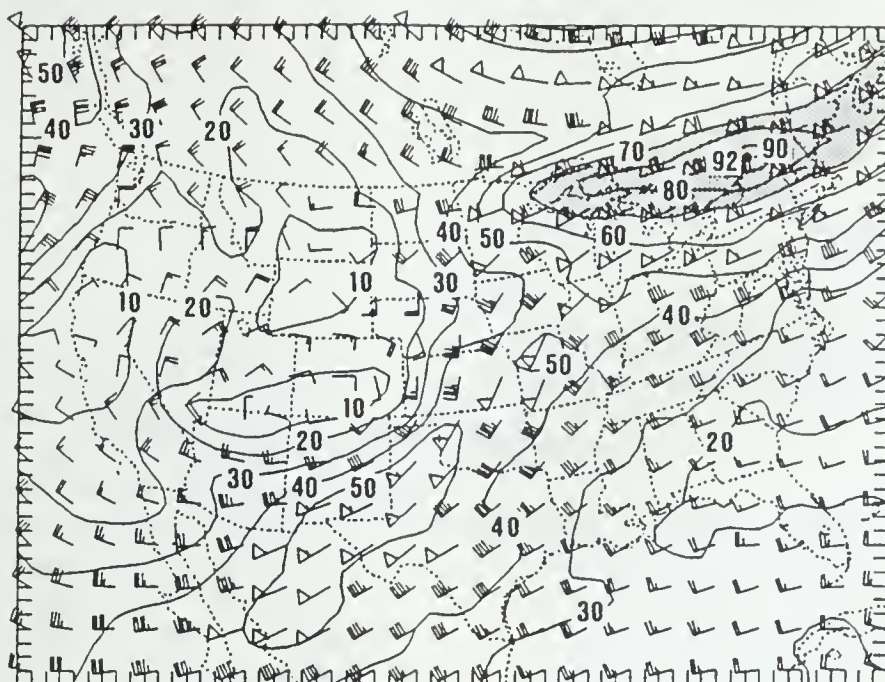 50
40 30 20
70 92 90
80
40 50 60
10 20 10 30
40
50
10
20 20
30 40 50
40
30